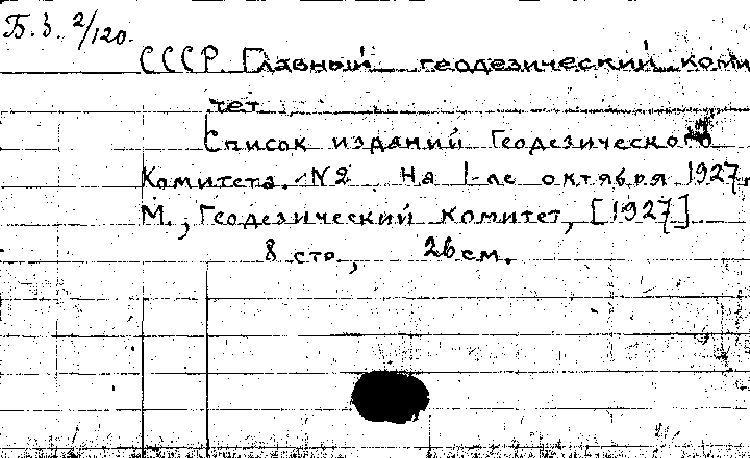 Б. З. 2/120.
СССР. Главный геодезический коми
тет
Список изданий Геодезического
Комитета. №2 На 1-ое октября 1927г.
М., Геодезический комитет, [1927]
8 стр., 26 см.